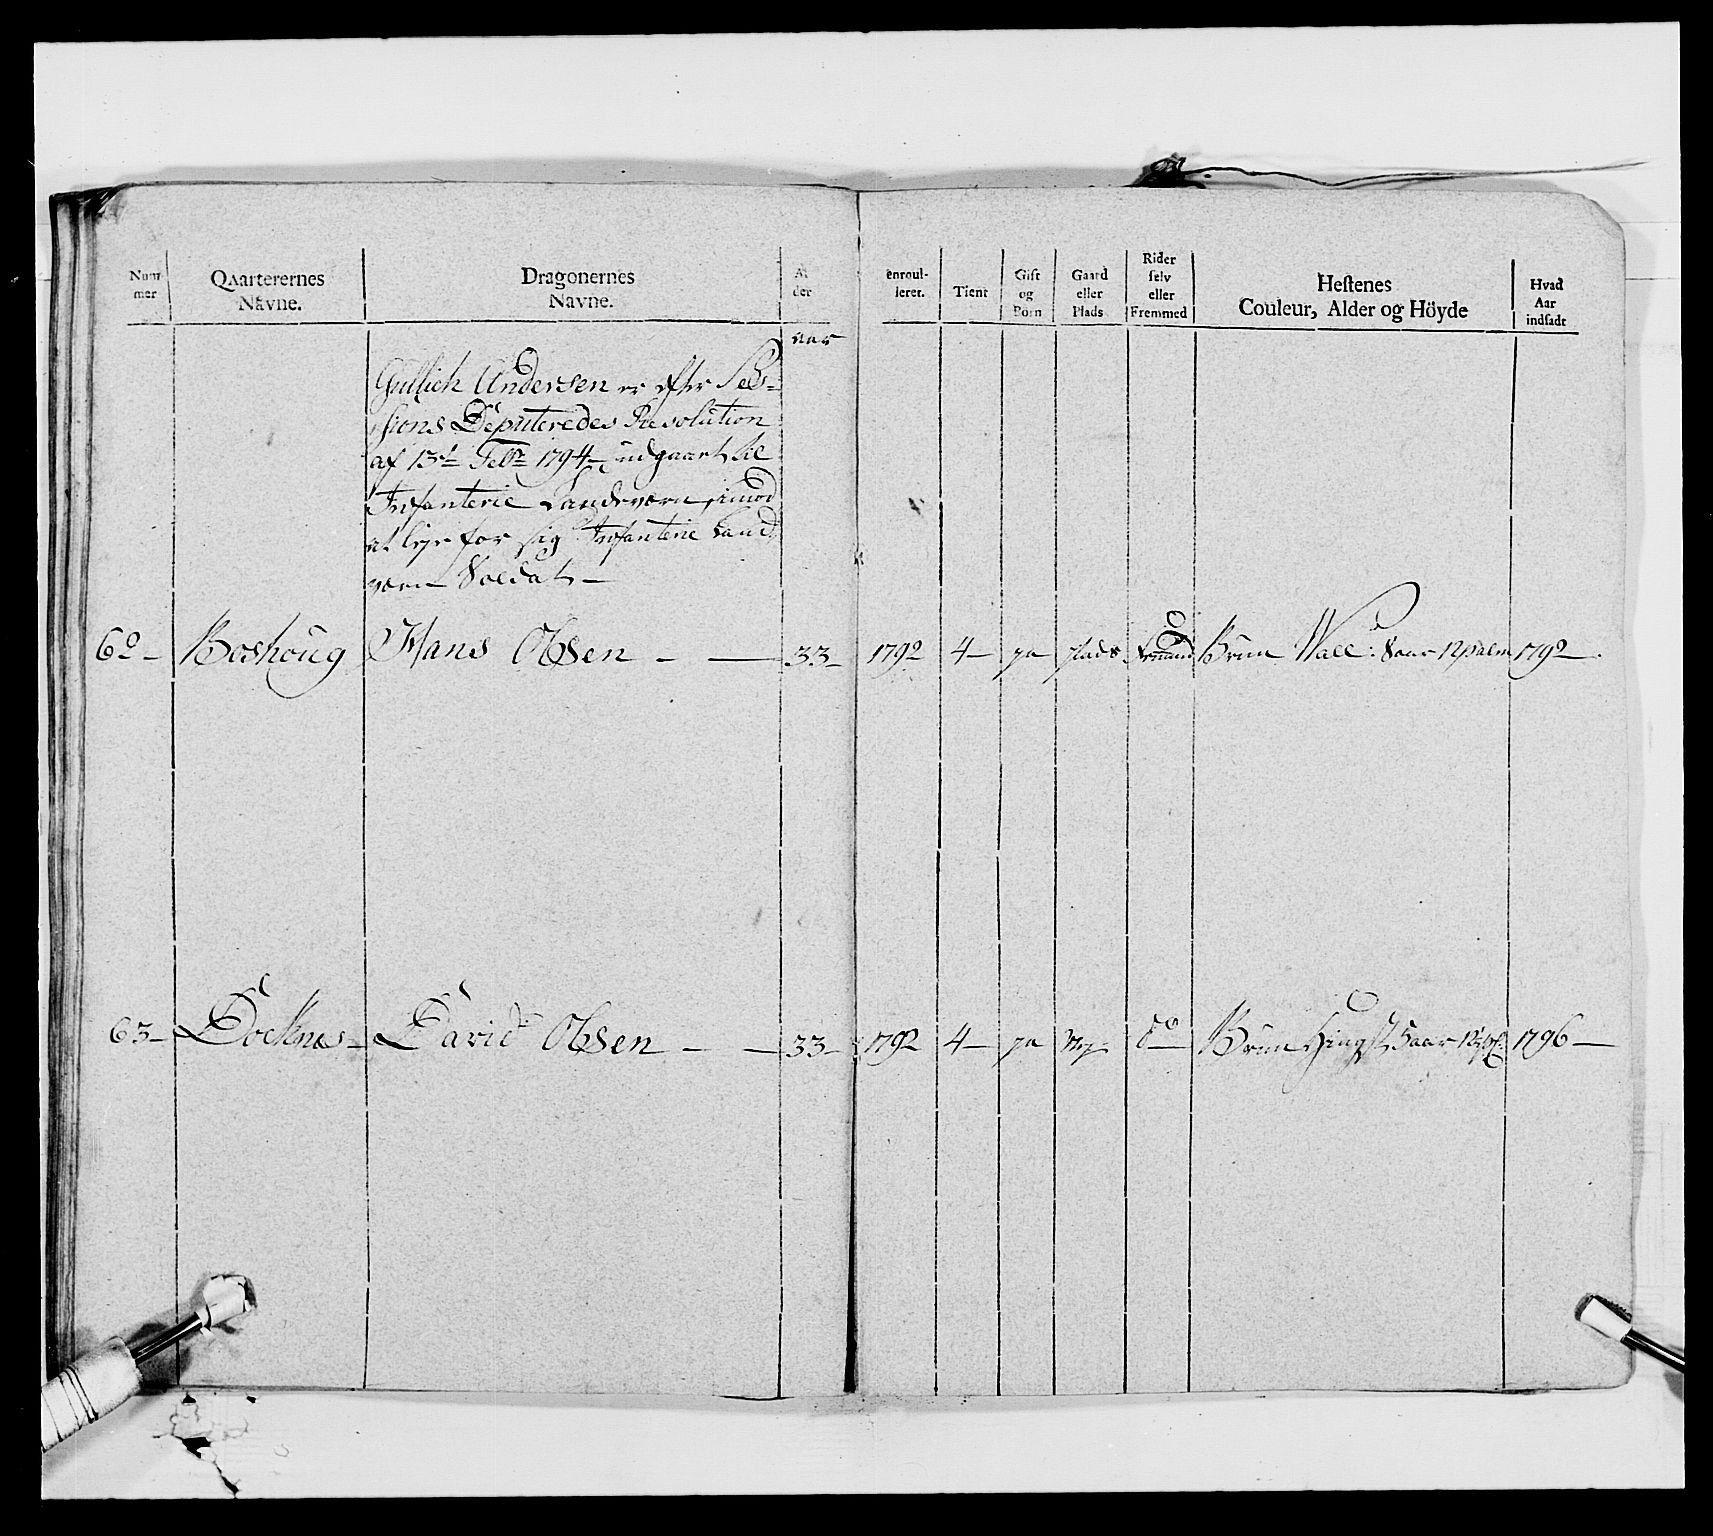 Num-
mer
Qvarterernes
Navne.
Dragonernes
Navne.
Al
der
enroul-
leret.
Tient
Gift
og
Børn
Gaard
eller
Plads
Rider
selv
eller
Fremmed
Hestenes
Couleur, Alder og Höyde
Hvad
Aar
indsadt
aar
Gullich Andersen er efter Ses-
sions Deputeredes Resolution
af 13de Febr 1794 udgaaet til
Infanterie Landeværn, imod
at leje for sig Infanterie Land
værn Soldat
62 Boshoug Hans Olsen 33 1792 4 ja plads fremmed Brun Wall: 8 aar 12 palm 1792
63 Docknes David Olsen 33 1792 4 ja do Brun Hingst 5 aar 1796